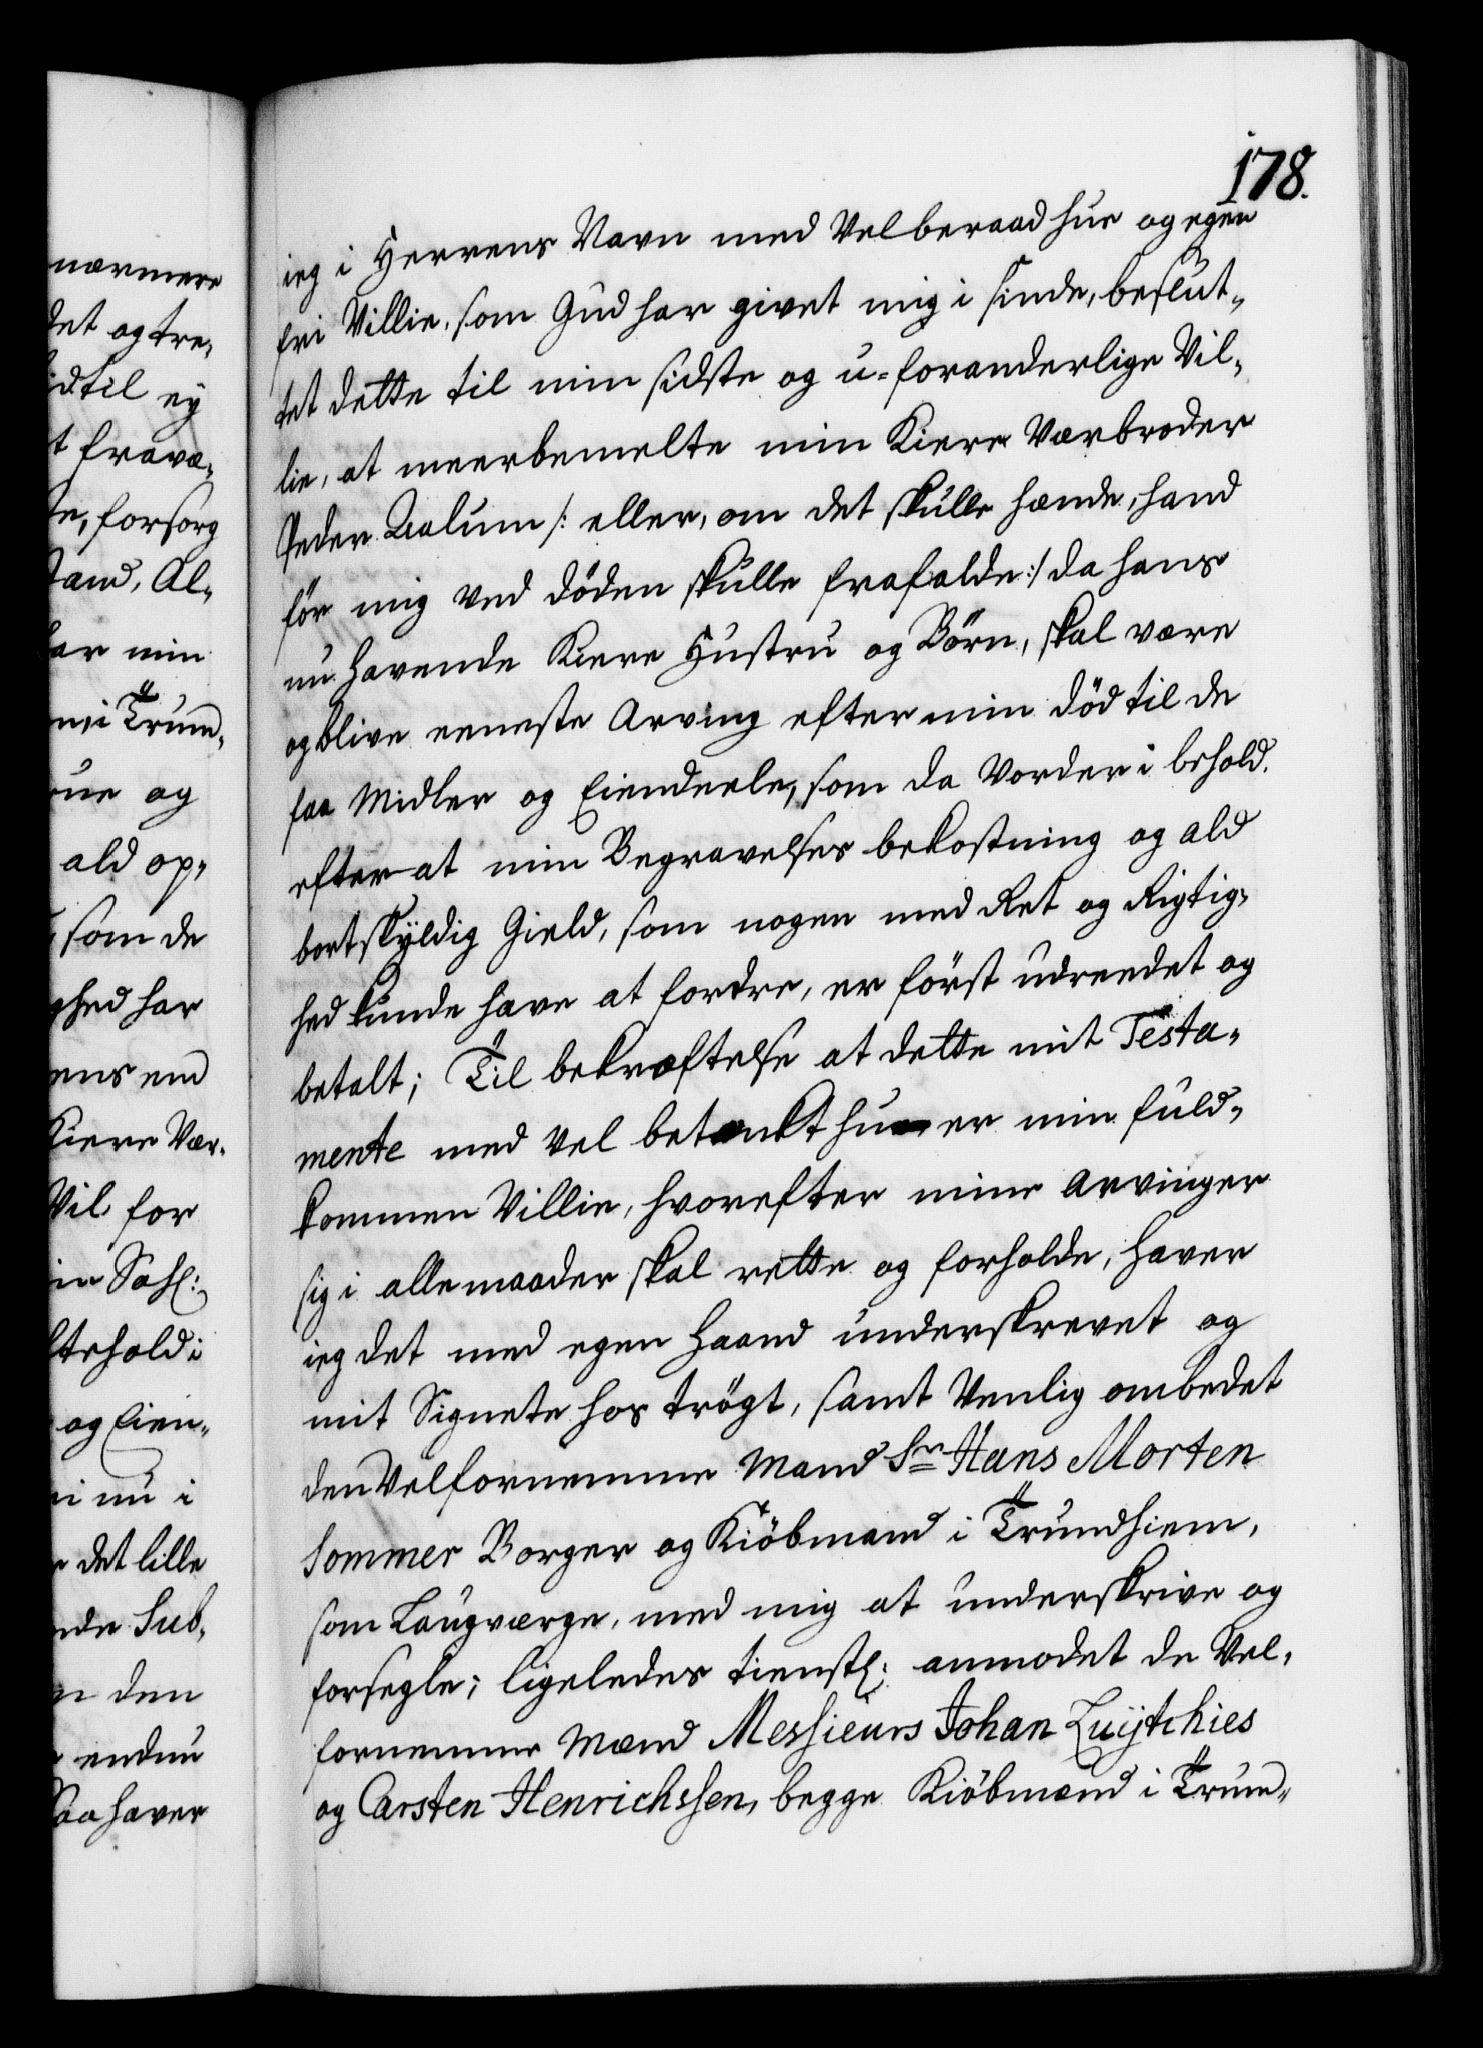 178.
ieg i Herrens Navn med Velberaad hue og egen
fri Villie, som Gud har givet mig i sinde, beslut-
tet dette til min sidste og u-foranderlige Vil-
lie, at meerbemelte min Kiere Værbroder
Peder Aalum /: eller, om det skulle hænde, hand
för mig ved döden skulle frafalde :/ da hans
nu havende Kiere Hustru og Börn, skal være
og blive eeneste Arving efter min död til de
faa Midler og Eiendeele, som da Vorder i behold.
efter at min Begravelses bekostning og ald
bortskyldig Gield, som nogen med Ret og Rigtig-
hed kunde have at fordre, er först udreedet og
betalt; Til bekræftelse at dette mit Testa-
mente med vel betænkt hue er min fuld-
kommen Villie, hvorefter mine Arvinger
sig i alle maader skal rette og forholde, haver
ieg det med egen Haand underskrevet og
mit Signete hos trögt, samt Venlig ombedet
den Velfornemme Mand Sr Hans Morten
Sommer Borger og Kiöbmand i Trundhiem,
som Laugværge, med mig at underskrive og
forsegle; ligeledes tienstl: anmodet de Vel-
fornemme Mænd Messieurs Johan Luijtchies
og Carsten Henrichssen, begge Kiöbmænd i Trun-
nærmere
det og tre-
idtil ey
t fravæ-
te, forsorg
tand, Al-
har min
m i Trun-
rue og
ald op-
som de
ghed har
ens end
Kiere Vær-
Vil for
in Sahl:
lte hold i
og Eien-
i nu i
det lille
nde Sub-
n den
endnu
Saa haver